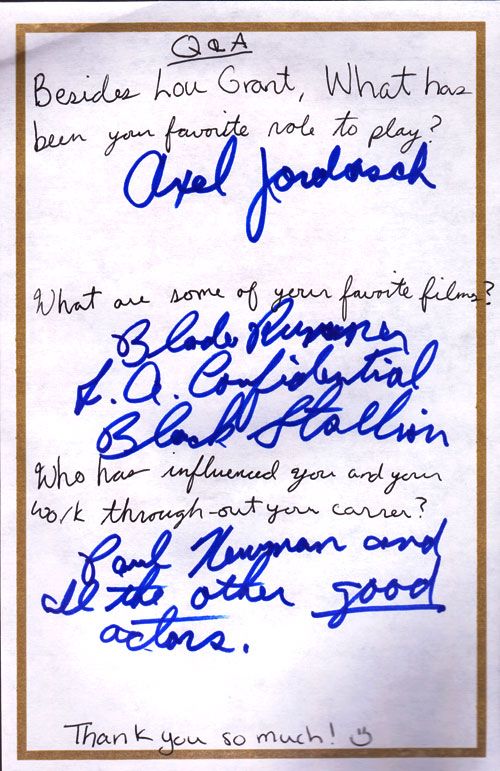 Q&A
Besides Lou Grant, What has
been your favorite role to play?
Axel Jordasch
What are some of your favorite films?
Blade Runner
L.A. Confidential
Black Stallion
Who has influenced you and your
work through-out your carrer?
Paul Newman and
all the other good
actors.
Thank you so much!